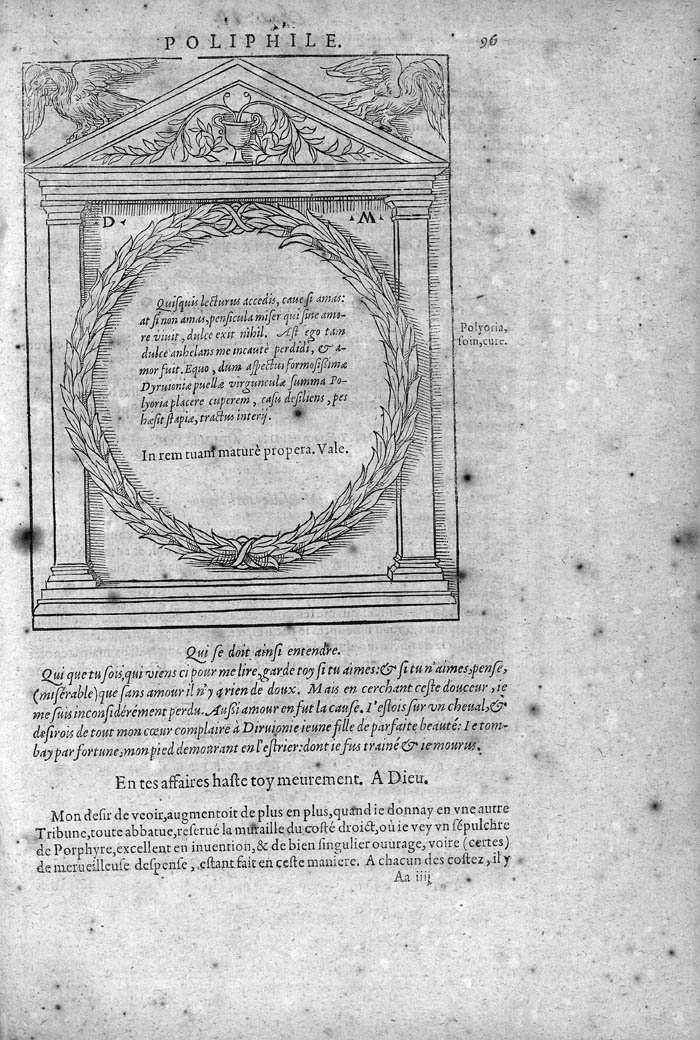 POLIPHILE.
96
D M
Quisquis lecturus accedis, caue si amas:
at si non amas, pensicula miser qui sine amo-
re viuit, dulce exit nihil. Ast ego tam
dulce anhelans me incautè perdidi, & a-
mor fuit. Equo, dum aspectui formosissimæ
Dyruioniæ puellæ virgunculæ summa Po-
lyoria placere cuperem, casu desiliens, pes
hæsit stapiæ, tractus interij.
In rem tuam maturè propera. Vale.
Polyoria,
soin, cure.
Qui se doit ainsi entendre.
Qui que tu sois, qui viens ci pour me lire, garde toy si tu aimes: & si tu n'aimes, pense,
(miserable) que sans amour il n'y a rien de doux. Mais en cerchant ceste douceur, ie
me suis inconsiderément perdu. Aussi amour en fut la cause. I'estois sur vn cheual, &
desirois de tout mon cœur complaire à Diruionie ieune fille de parfaite beauté: Ie tom-
bay par fortune, mon pied demourant en l'estrier: dont ie fus trainé & ie mourus.
En tes affaires haste toy meurement. A Dieu.
Mon desir de veoir, augmentoit de plus en plus, quand ie donnay en vne autre
Tribune, toute abbatue, reserué la muraille du costé droict, où ie vey vn sépulchre
de Porphyre, excellent en inuention, & de bien singulier ouurage, voire (certes)
de merueilleuse despense, estant fait en ceste maniere. A chacun des costez, il y
Aa iiij